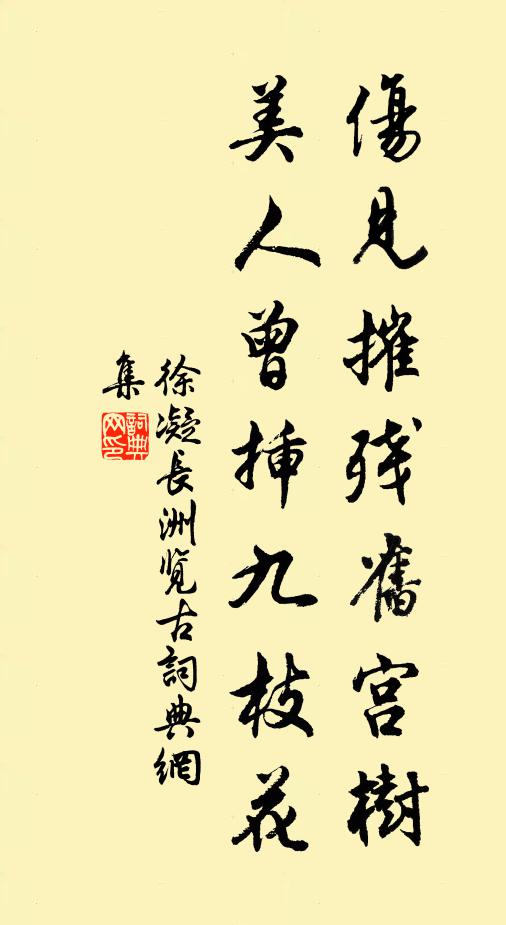 傷見摧残舊宫樹
美人曾插九枝花
徐凝長洲覽古詞典網
集
詞典网印